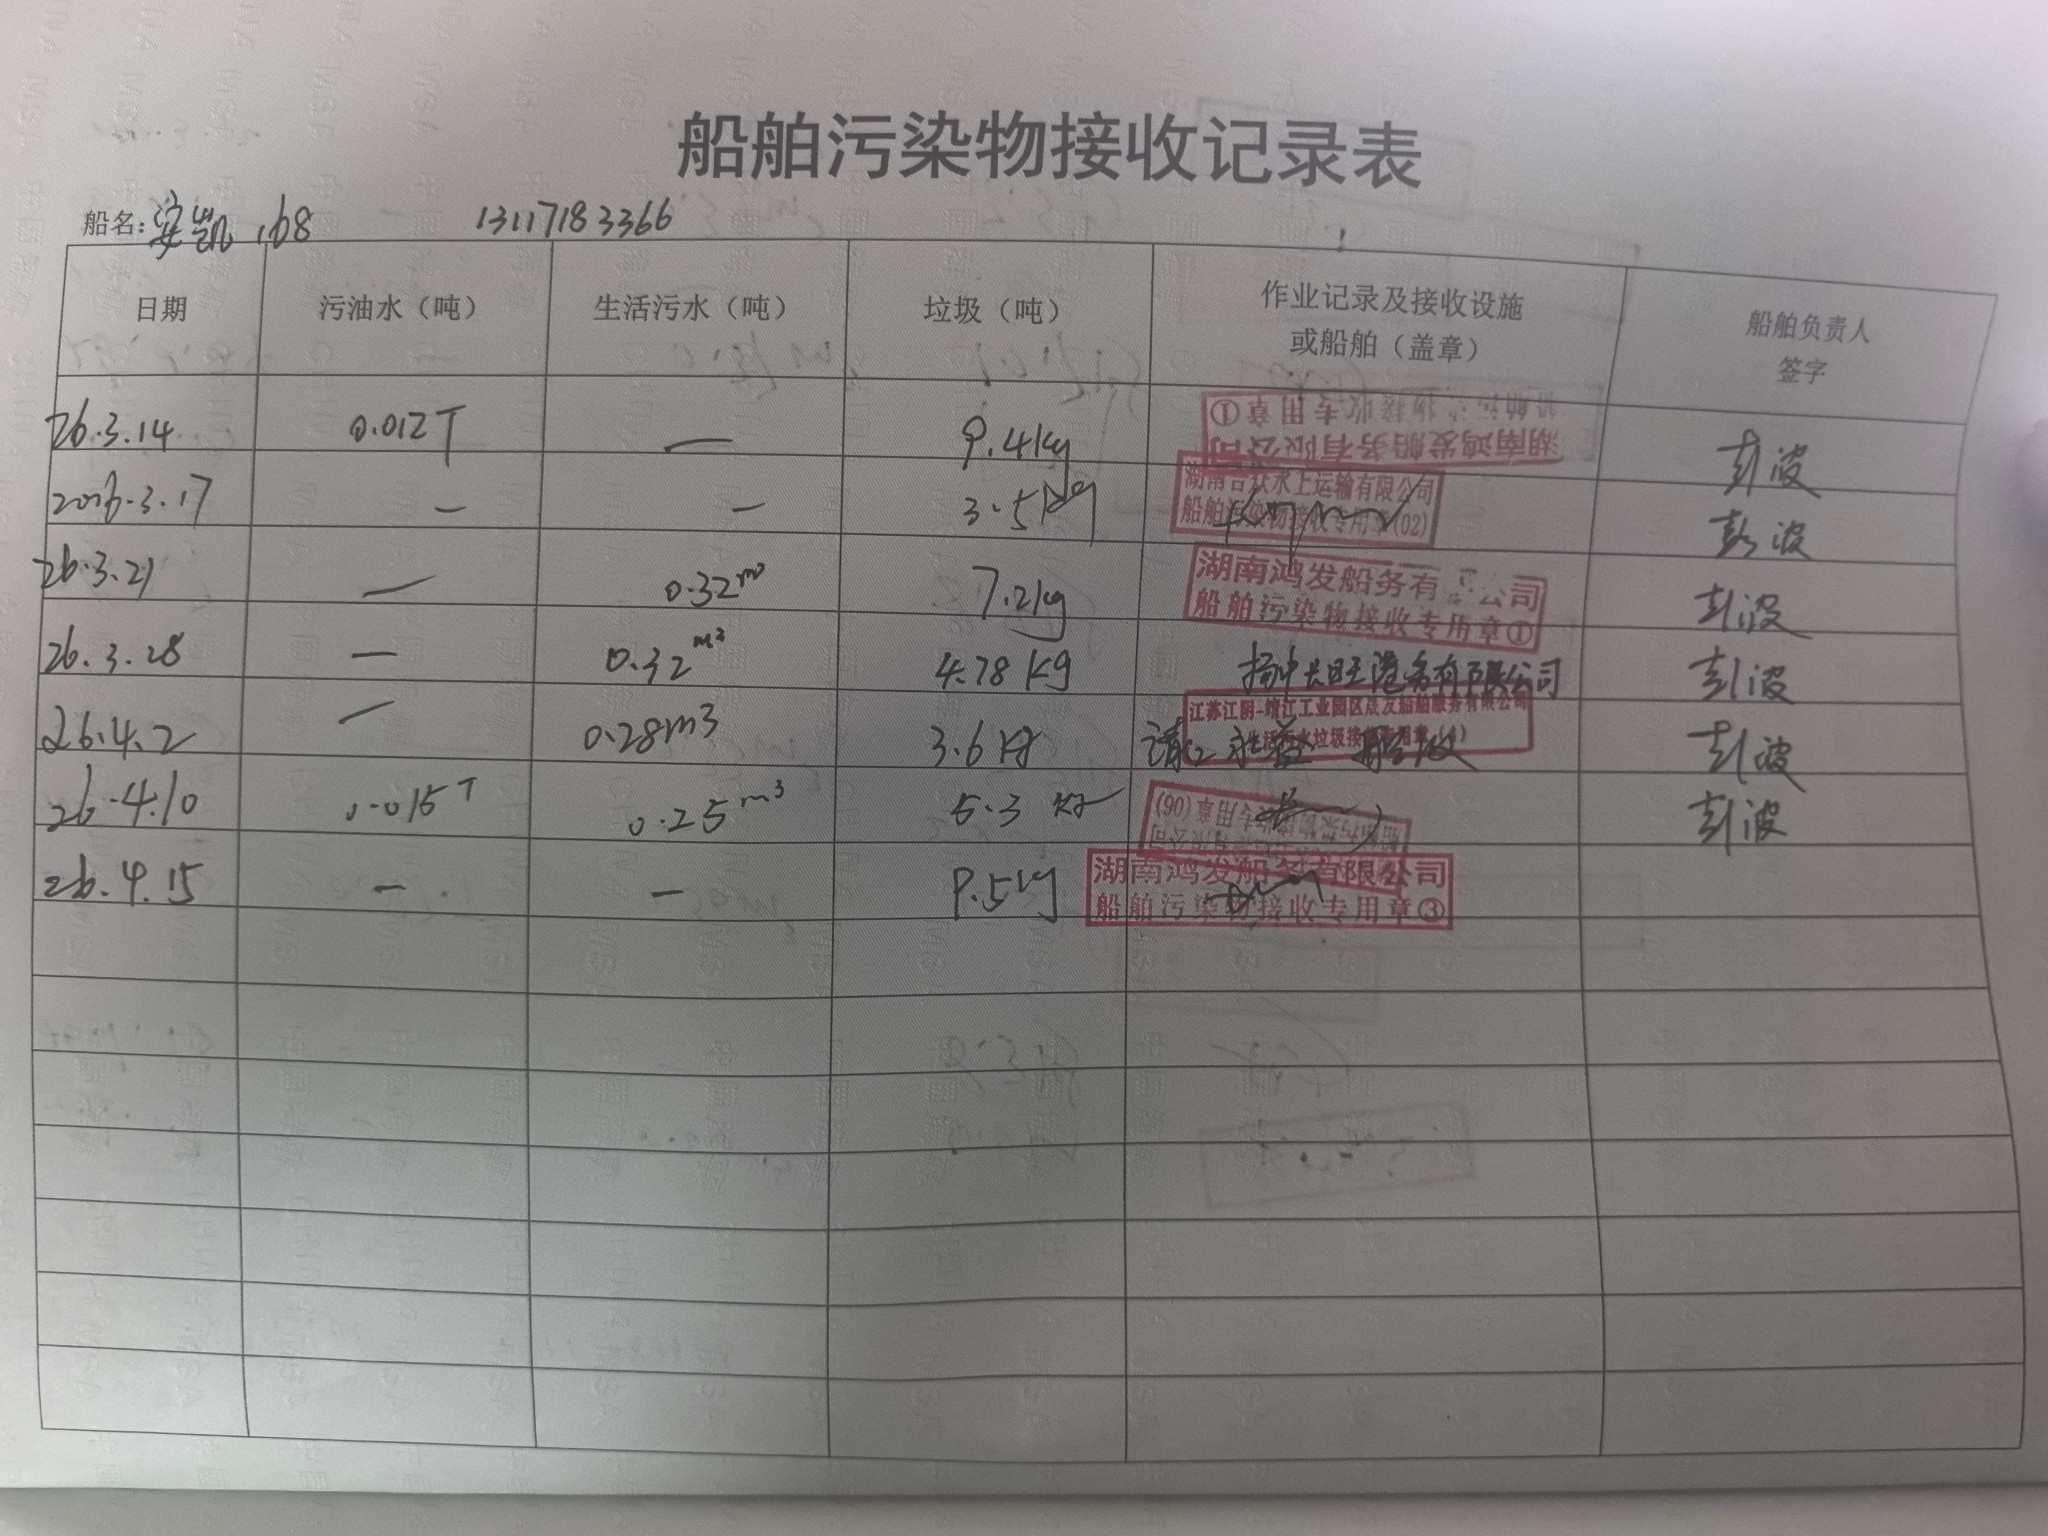 船舶污染物接收记录表
船名: 安凯168 13117183366
日期 污油水（吨） 生活污水（吨） 垃圾（吨） 作业记录及接收设施或船舶（盖章） 船舶负责人签字
26.3.14 0.012T — 9.4kg 湖南鸿发船务有限公司 船舶污染物接收专用章① 彭波
2026.3.17 — — 3.5kg 湖南合众水上运输有限公司 船舶污染物接收专用章(02) 彭波
26.3.21 — 0.32m³ 7.2kg 湖南鸿发船务有 公司 船舶污染物接收专用章① 彭波
26.3.28 — 0.32m³ 4.78kg 扬中 港务有限公司 彭波
26.4.2 — 0.28m3 3.6kg 江苏江阴-靖江工业园区晟友船舶服务有限公司 彭波
26.4.10 0.015T 0.25m³ 5.3kg 专用章(06) 彭波
26.4.15 — — 9.5kg 湖南鸿发船务有限公司 船舶污染物接收专用章③